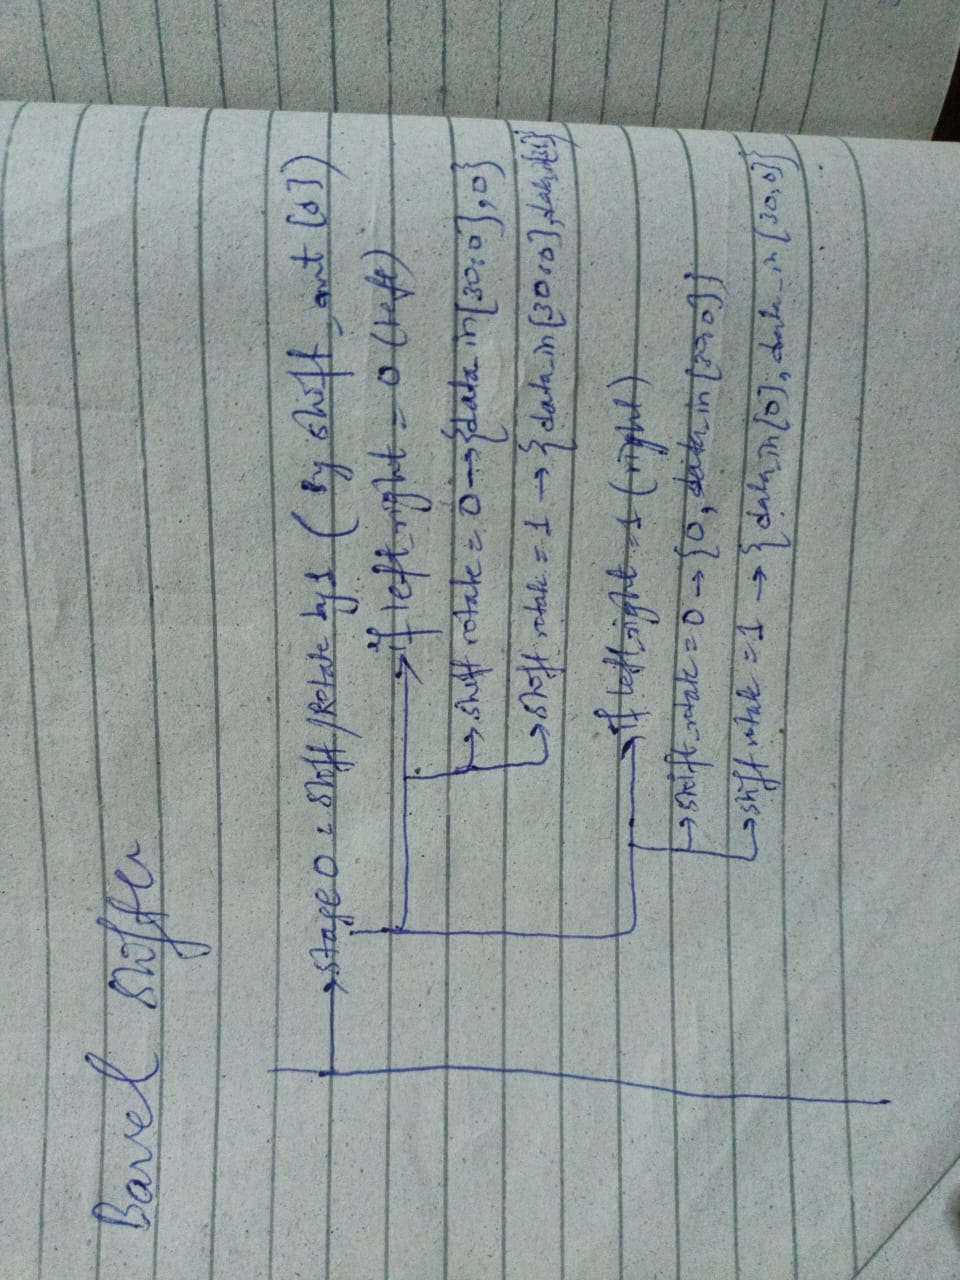 Barrel shifter
→ stage 0 : shift/Rotate by 1 (By shift_amt [0])
→ if left_right = 0 (left)
→ shift rotate = 0 → {data_in[30:0],0}
→ shift rotate = 1 → {data_in[30:0],data_in[31]}
→ if left_right = 1 (right)
→ shift_rotate = 0 → {0, data_in[30:0]}
→ shift rotate = 1 → {data_in[0], data_in[30:0]}